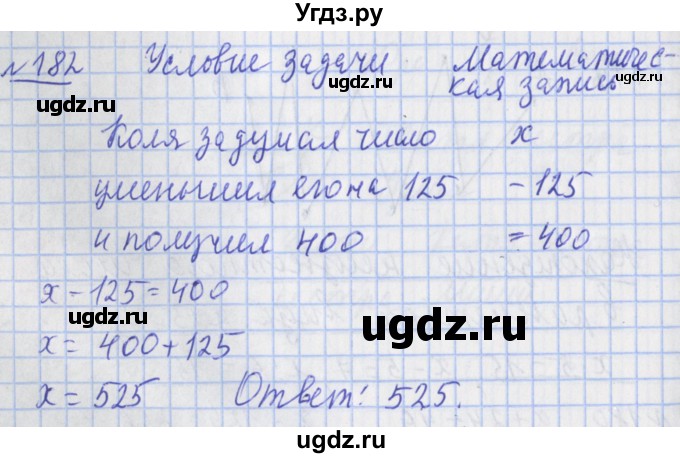 Угдз.ру
№182 Условие задачи Математичес-
кая запись
Коля задумал число x
уменьшил его на 125 - 125
и получил 400 = 400
x - 125 = 400
x = 400 + 125
x = 525 Ответ: 525.
ugdz.ru
ugdz.ru
ugdz.ru
ugdz.ru
ugdz.ru
ugdz.ru
ugdz.ru